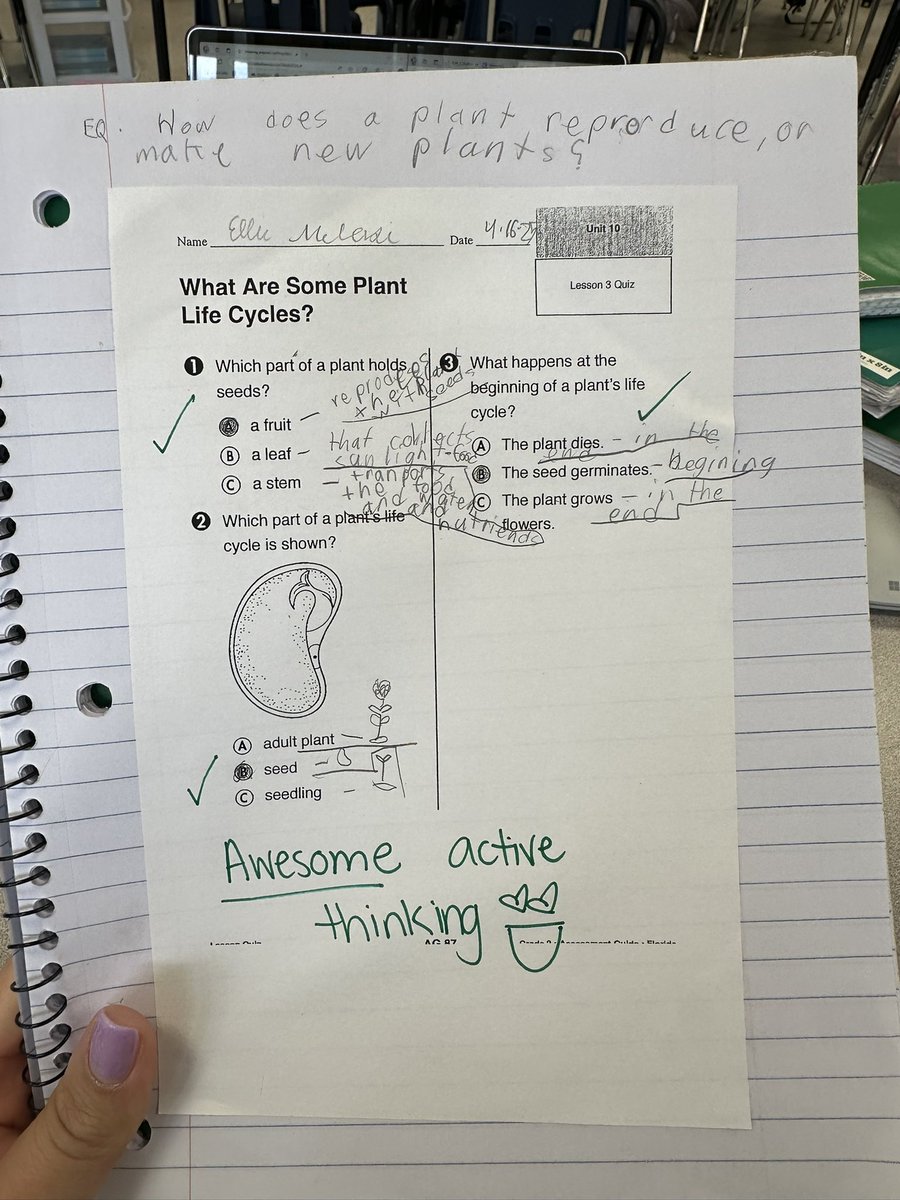 EQ. How does a plant reproduce, or
make new plants?
Name Date 4-16-2
Unit 10
Lesson 3 Quiz
What Are Some Plant
Life Cycles?
1 Which part of a plant holds
seeds?
A a fruit –
B a leaf – that collects
sunlight - food
C a stem – tranports
the food
and water
and
nutriends
2 Which part of a plant's life
cycle is shown?
A adult plant –
B seed –
C seedling –
3 What happens at the
beginning of a plant's life
cycle?
A The plant dies. – in the
end
B The seed germinates. – begining
C The plant grows – in the
flowers. end
Awesome active
thinking
Lesson Quiz AG 87 Grade 2 • Assessment Guide • Florida